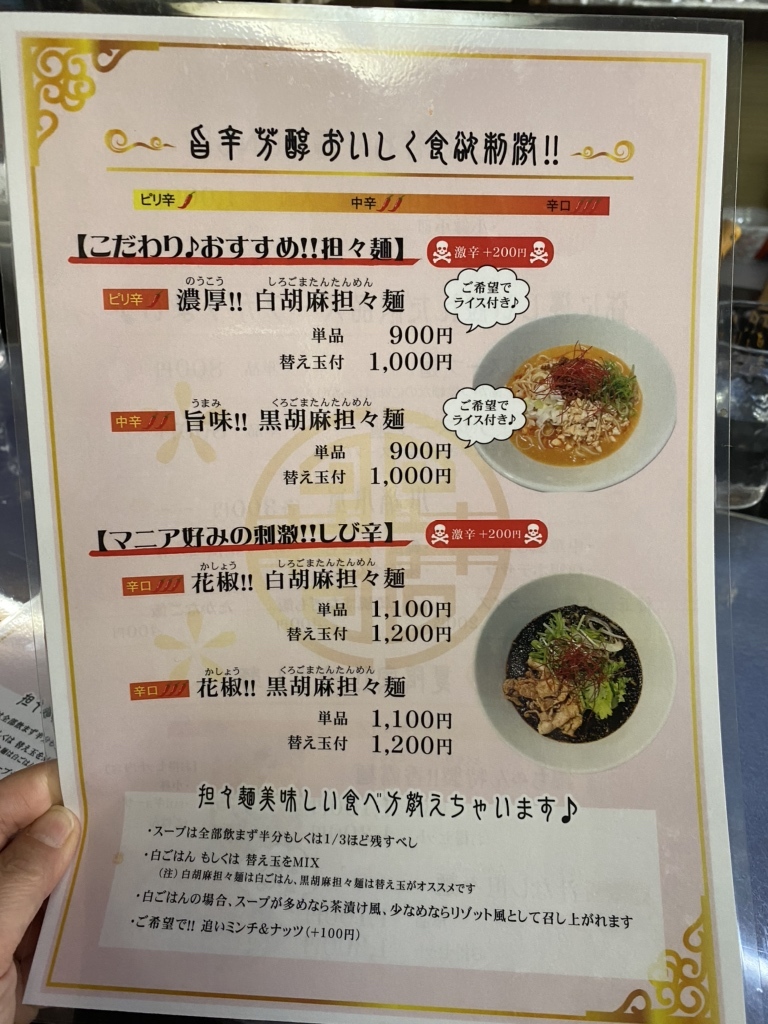 旨辛 芳醇 おいしく食欲刺激!!
ピリ辛 中辛 辛口
【こだわり♪おすすめ!!担々麺】 激辛 +200円
のうこう しろごまたんたんめん
ピリ辛 濃厚!! 白胡麻担々麺
ご希望で
ライス付き♪
単品 900円
替え玉付 1,000円
うまみ くろごまたんたんめん
中辛 旨味!! 黒胡麻担々麺
ご希望で
ライス付き♪
単品 900円
替え玉付 1,000円
【マニア好みの刺激!!しび辛】 激辛 +200円
かしょう しろごまたんたんめん
辛口 花椒!! 白胡麻担々麺
単品 1,100円
替え玉付 1,200円
かしょう くろごまたんたんめん
辛口 花椒!! 黒胡麻担々麺
単品 1,100円
替え玉付 1,200円
担々麺美味しい食べ方教えちゃいます♪
・スープは全部飲まず半分もしくは1/3ほど残すべし
・白ごはん もしくは 替え玉をMIX
(注) 白胡麻担々麺は白ごはん、黒胡麻担々麺は替え玉がオススメです
・白ごはんの場合、スープが多めなら茶漬け風、少なめならリゾット風として召し上がれます
・ご希望で!! 追いミンチ&ナッツ(+100円)